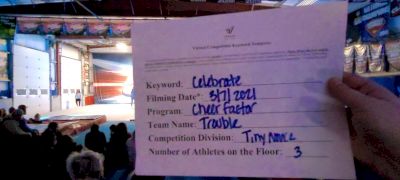 Virtual Competition Keyword Template
Keyword: Celebrate
Filming Date*: 3/7/2021
Program: Cheer Factor
Team Name: Trouble
Competition Division: Tiny Novice
Number of Athletes on the Floor: 3